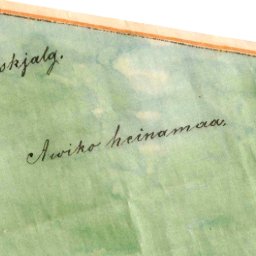 skjalg.
Awiko heinamaa.